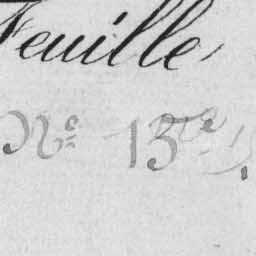 Feuille
Nº 13te